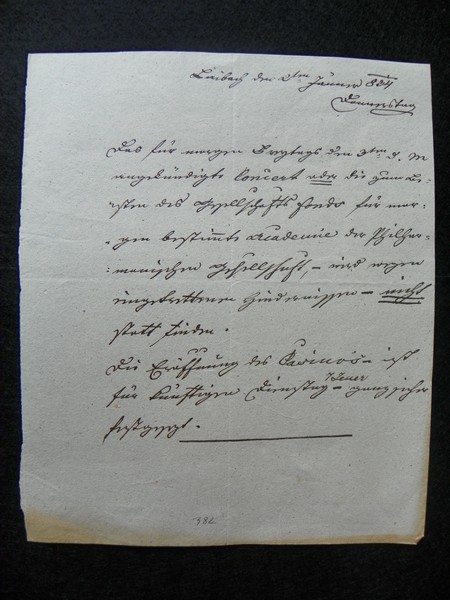 Laibach den 2ten Jänner 834
Donnerstag
Das für morgen Freytags den 3ten d. M
angekündigte Concert oder die zum Be-
sten des Gesellschafts fonds für mor-
gen bestimmte Academie der Philhar-
monischen Gesellschaft – wird wegen
eingetrettenen Hindernissen – nicht
statt finden.
Die Eröffnung des Casino's – ist
für künftigen Dienstag 7 Jener ganz sicher
festgesezt.